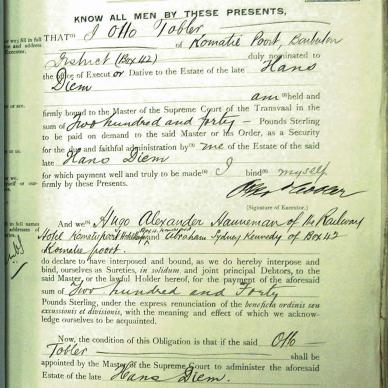 KNOW ALL MEN BY THESE PRESENTS,
THAT I Otto Tobler
of Komatie Poort, Barberton
District (Box 42) duly nominated to
the office of Executor Dative to the Estate of the late Hans
Diem
am held and
firmly bound to the Master of the Supreme Court of the Transvaal in the
sum of Two hundred and forty - Pounds Sterling
to be paid on demand to the said Master or his Order, as a Security
for the due and faithful administration by me of the Estate of the said
late Hans Diem
for which payment well and truly to be made I bind myself
firmly by these Presents.
Otto Tobler
(Signature of Executor.)
And we Hugo Alexander Hanneman of the Railway
Hotel Komatipoort and Abraham Sydney Kennedy of Box 42
Komatie poort.
do declare to have interposed and bound, as we do hereby interpose and
bind, ourselves as Sureties, in solidum and joint principal Debtors, to the
said Master, or the lawful Holder hereof, for the payment of the aforesaid
sum of Two hundred and Forty
Pounds Sterling, under the express renunciation of the beneficia ordinis seu
excussionis et divisionis, with the meaning and effect of which we acknow-
ledge ourselves to be acquainted.
Now, the condition of this Obligation is that if the said Otto
Tobler shall be
appointed by the Master of the Supreme Court to administer the aforesaid
Estate of the late Hans Diem.